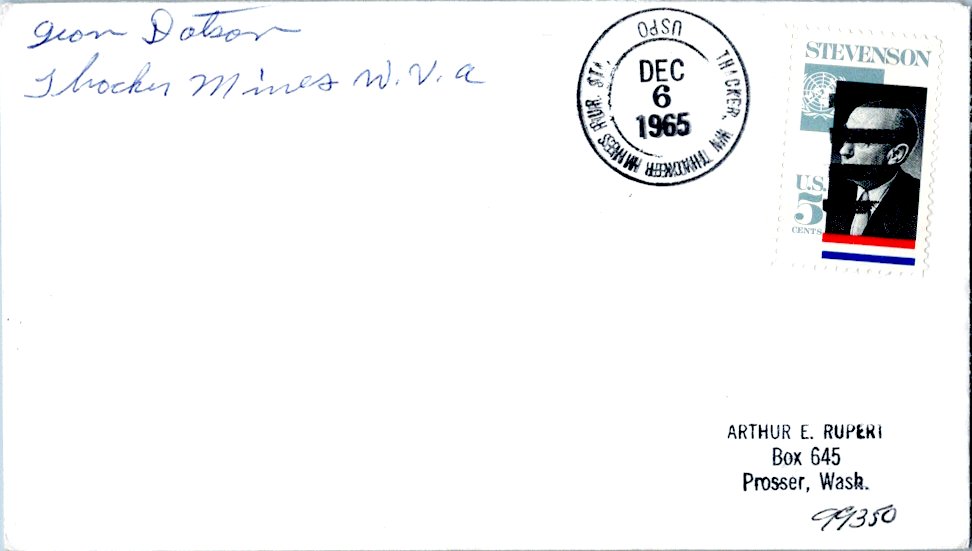 Dotson
Thacker Mines W.V.a
USPO
THACKER, WV THACKER MINES RUR. STA.
DEC
6
1965
STEVENSON
U.S.
5
CENTS
ARTHUR E. RUPERT
Box 645
Prosser, Wash.
99350